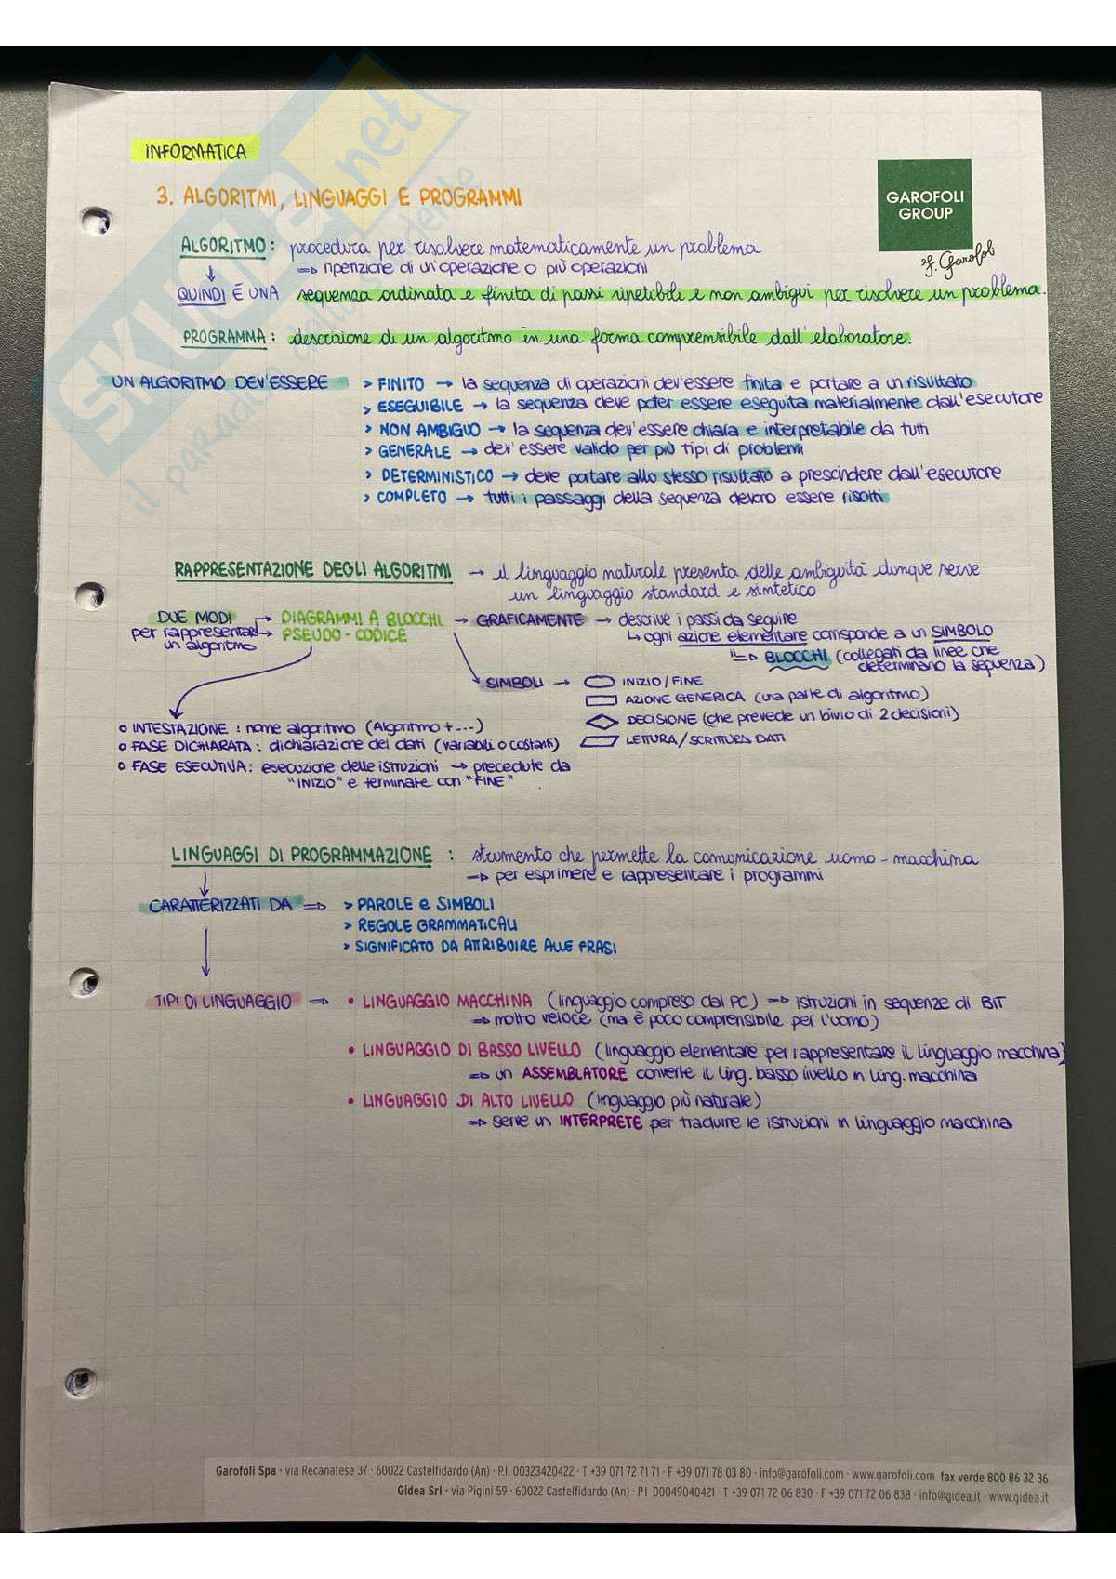 INFORMATICA
3. ALGORITMI, LINGUAGGI E PROGRAMMI
GAROFOLI
GROUP
f. Garofoli
ALGORITMO: procedura per risolvere matematicamente un problema
⇒ ripetizione di un'operazione o più operazioni
QUINDI È UNA sequenza ordinata e finita di passi ripetibili e non ambigui per risolvere un problema.
PROGRAMMA: descrizione di un algoritmo in una forma comprensibile dall'elaboratore.
UN ALGORITMO DEV'ESSERE > FINITO → la sequenza di operazioni dev'essere finita e portare a un risultato
> ESEGUIBILE → la sequenza deve poter essere eseguita materialmente dall'esecutore
> NON AMBIGUO → la sequenza dev'essere chiara e interpretabile da tutti
> GENERALE → dev'essere valido per più tipi di problemi
> DETERMINISTICO → deve portare allo stesso risultato a prescindere dall'esecutore
> COMPLETO → tutti i passaggi della sequenza devono essere risolti
RAPPRESENTAZIONE DEGLI ALGORITMI → il linguaggio naturale presenta delle ambiguità dunque serve
un linguaggio standard e sintetico
DUE MODI → DIAGRAMMI A BLOCCHI → GRAFICAMENTE → descrive i passi da seguire
per rappresentare → PSEUDO-CODICE ↳ ogni azione elementare corrisponde a un SIMBOLO
un algoritmo
⇒ BLOCCHI (collegati da linee che
determinano la sequenza)
SIMBOLI → INIZIO/FINE
AZIONE GENERICA (una parte di algoritmo)
DECISIONE (che prevede un bivio di 2 decisioni)
LETTURA/SCRITTURA DATI
o INTESTAZIONE : nome algoritmo (Algoritmo + ...)
o FASE DICHIARATA : dichiarazione dei dati (variabili o costanti)
o FASE ESECUTIVA : esecuzione delle istruzioni → precedute da
"INIZIO" e terminate con "FINE"
LINGUAGGI DI PROGRAMMAZIONE : strumento che permette la comunicazione uomo-macchina
⇒ per esprimere e rappresentare i programmi
CARATTERIZZATI DA ⇒ > PAROLE e SIMBOLI
> REGOLE GRAMMATICALI
> SIGNIFICATO DA ATTRIBUIRE ALLE FRASI
TIPI DI LINGUAGGIO → • LINGUAGGIO MACCHINA (linguaggio compreso dal PC) ⇒ istruzioni in sequenze di BIT
⇒ molto veloce (ma è poco comprensibile per l'uomo)
• LINGUAGGIO DI BASSO LIVELLO (linguaggio elementare per rappresentare il linguaggio macchina)
⇒ un ASSEMBLATORE converte il ling. basso livello in ling. macchina
• LINGUAGGIO DI ALTO LIVELLO (linguaggio più naturale)
⇒ serve un INTERPRETE per tradurre le istruzioni in linguaggio macchina
Garofoli Spa · via Recanatese 37 · 60022 Castelfidardo (An) · P.I. 00323420422 · T +39 071 72 71 71 · F +39 071 78 03 80 · info@garofoli.com · www.garofoli.com fax verde 800 86 32 36
Gidea Srl · via Pigini 59 · 60022 Castelfidardo (An) · P.I. 00049040421 · T +39 071 72 06 830 · F +39 071 72 06 838 · info@gidea.it · www.gidea.it
SKUOLA.net